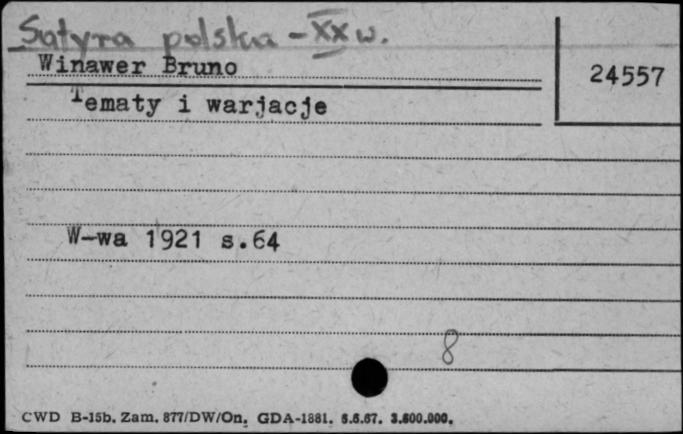 Satyra polska - XX w.
Winawer Bruno
24557
Tematy i warjacje
W-wa 1921 s.64
8
CWD B-15b. Zam. 877/DW/On. GDA-1881. 5.6.67. 3.600.000.